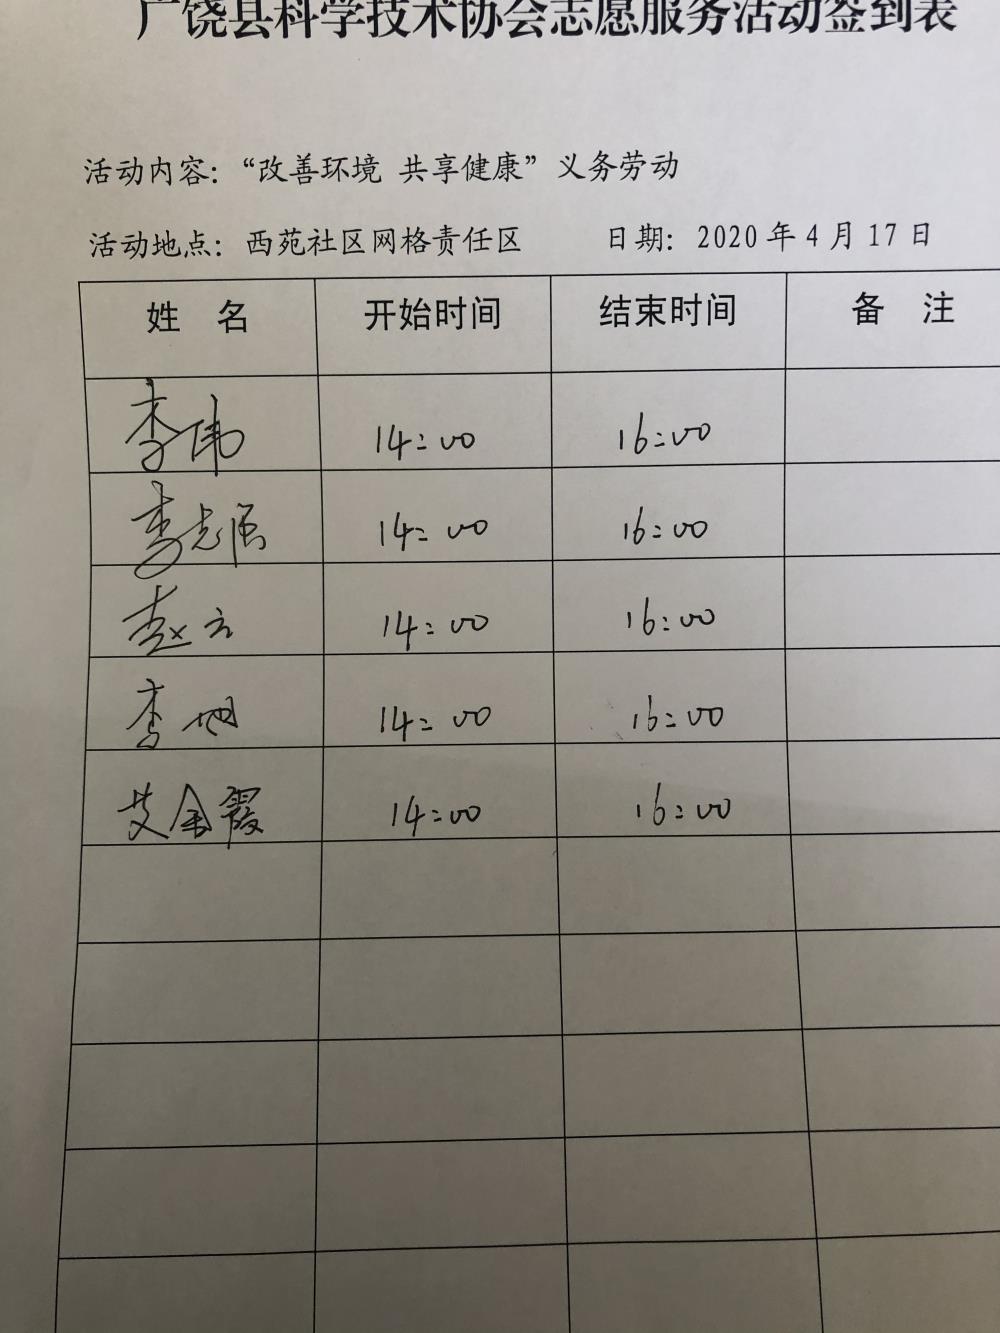 广饶县科学技术协会志愿服务活动签到表
活动内容：“改善环境 共享健康”义务劳动
活动地点：西苑社区网格责任区 日期：2020年4月17日
姓 名 开始时间 结束时间 备 注
李伟 14:00 16:00
李志强 14:00 16:00
赵云 14:00 16:00
李 14:00 16:00
艾金霞 14:00 16:00